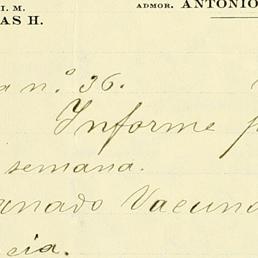 I. M. ADMOR. ANTONIO
AS H.
a n.º 36.
Informe p
semana.
anado Vacuno
cia.